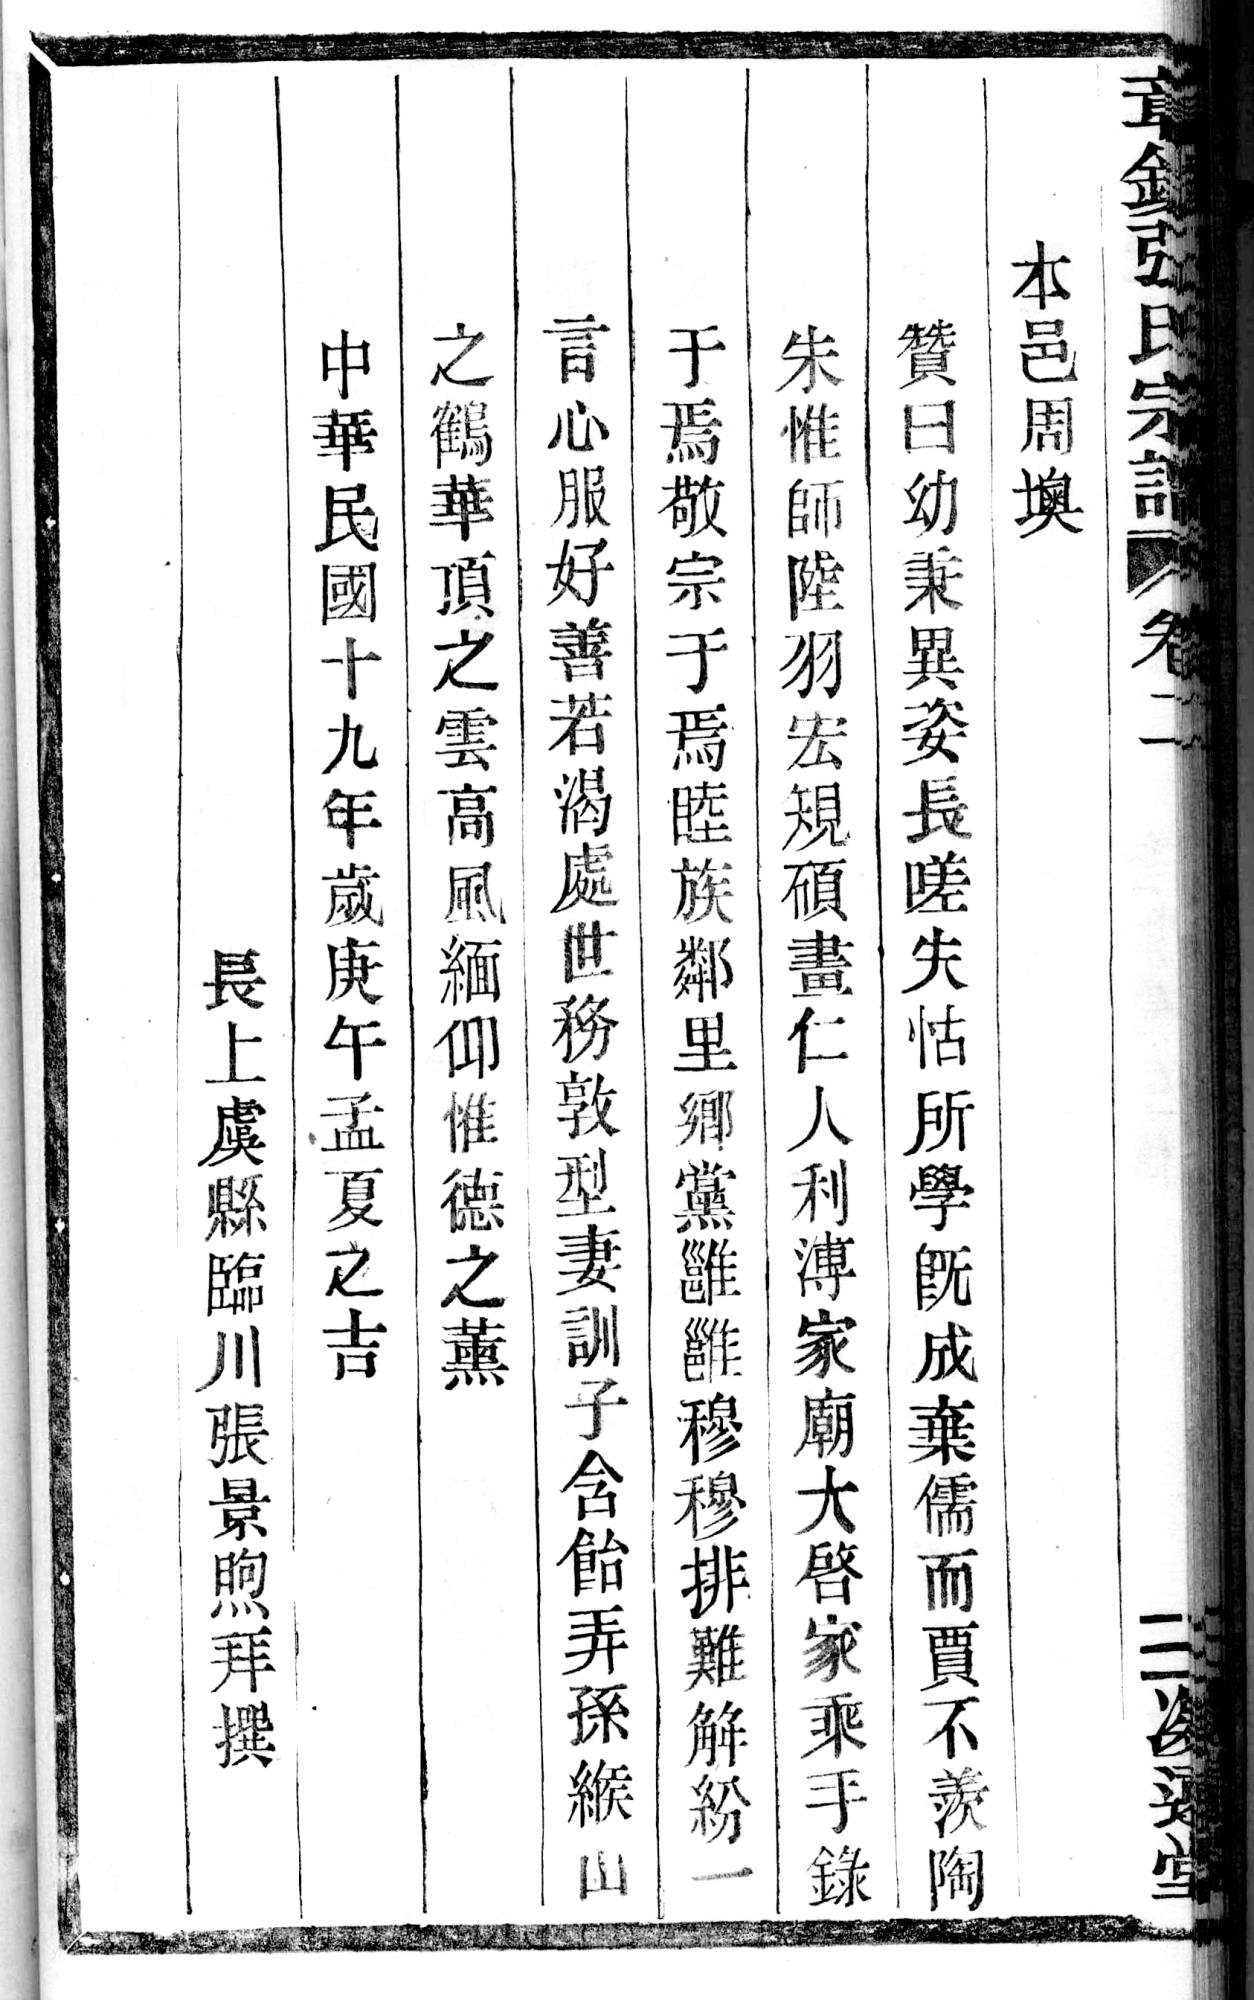 章鎮張氏宗譜 卷二
本邑周墺
贊曰幼秉異姿長嗟失怙所學旣成棄儒而賈不羨陶
朱惟師陸羽宏規碩畫仁人利溥家廟大啓家乘手錄
于焉敬宗于焉睦族鄰里鄉黨雝雝穆穆排難解紛一
言心服好善若渴處世務敦型妻訓子含飴弄孫緱山
之鶴華頂之雲高風緬仰惟德之薰
中華民國十九年歲庚午孟夏之吉
長上虞縣臨川張景煦拜撰